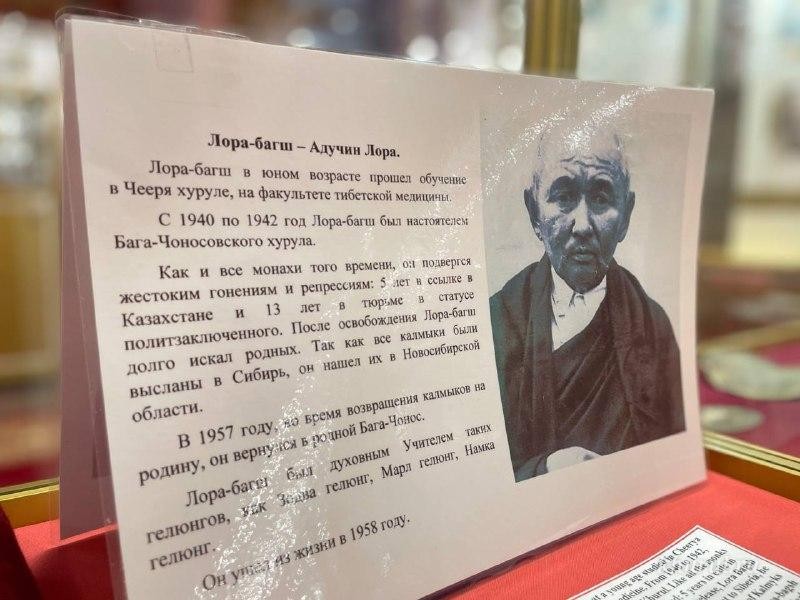 Лора-багш – Адучин Лора.
Лора-багш в юном возрасте прошел обучение
в Чееря хуруле, на факультете тибетской медицины.
С 1940 по 1942 год Лора-багш был настоятелем
Бага-Чоносовского хурула.
Как и все монахи того времени, он подвергся
жестоким гонениям и репрессиям: 5 лет в ссылке в
Казахстане и 13 лет в тюрьме в статусе
политзаключенного. После освобождения Лора-багш
долго искал родных. Так как все калмыки были
высланы в Сибирь, он нашел их в Новосибирской
области.
В 1957 году, во время возвращения калмыков на
родину, он вернулся в родной Бага-Чонос.
Лора-багш был духовным Учителем таких
гелюнгов, как Зодва гелюнг, Марл гелюнг, Намка
гелюнг.
Он ушел из жизни в 1958 году.
a young age studied in Cheerya
From 1940 to 1942,
Like all the monks
5 years in exile in
Lora Bagsh
to Siberia, he
Kalmyks